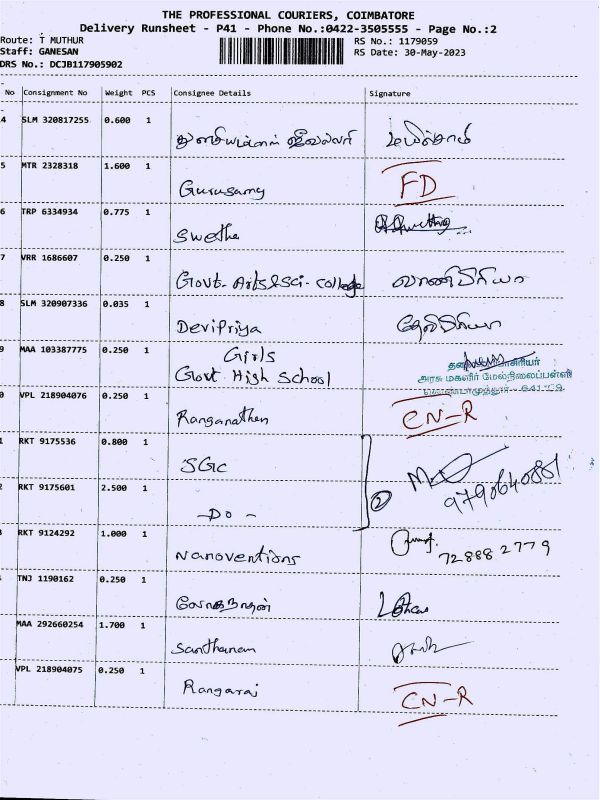 THE PROFESSIONAL COURIERS, COIMBATORE
Delivery Runsheet - P41 - Phone No.:0422-3505555 - Page No.:2
Route: T MUTHUR RS No.: 1179059
Staff: GANESAN RS Date: 30-May-2023
DRS No.: DCJB117905902
No Consignment No Weight PCS Consignee Details Signature
4 SLM 320817255 0.600 1
5 MTR 2328318 1.600 1
Gurusamy FD
6 TRP 6334934 0.775 1
Swetha
7 VRR 1686607 0.250 1
Govt- Arts & Sci- College வாணிப்ரியா
8 SLM 320907336 0.035 1
DeviPriya தேவிப்ரியா
9 MAA 103387775 0.250 1
Girls
Govt. High School
அரசு மகளிர் மேல்நிலைப்பள்ளி
0 VPL 218904076 0.250 1
Ranganathan CN-R
1 RKT 9175536 0.800 1
SGC
2 RKT 9175601 2.500 1
2 9790640881
-Do-
RKT 9124292 1.000 1
Nanoventions 728882779
TNJ 1190162 0.250 1
லோகநாதன்
MAA 292660254 1.700 1
Santhanam
VPL 218904075 0.250 1
Rangaraj CN-R